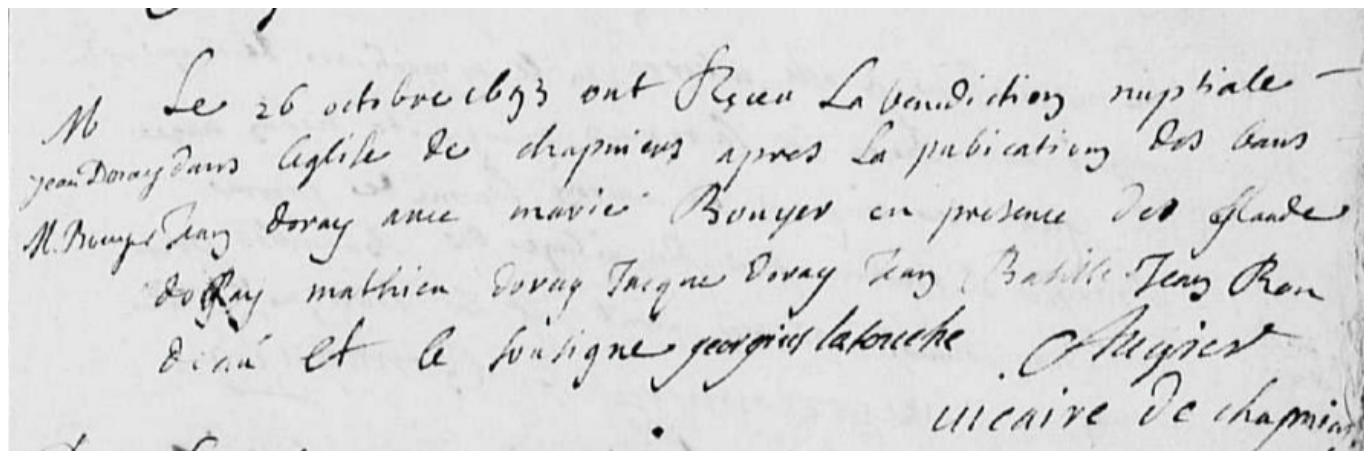 Le 26 octobre 1693 ont Reçeu La benediction nuptiale
M
dans leglise de chapniers apres La pubication des bans
jean Doray
Jean doray avec marie Bouyer en presence de Glaude
M. Bouyer
doRay mathieu doray Jacque doray Jean Jean Ron
deau et le sousigne georgius latouche Augier
vicaire de chapniers